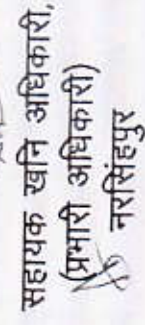 सहायक खनि अधिकारी,
(प्रभारी अधिकारी)
नरसिंहपुर